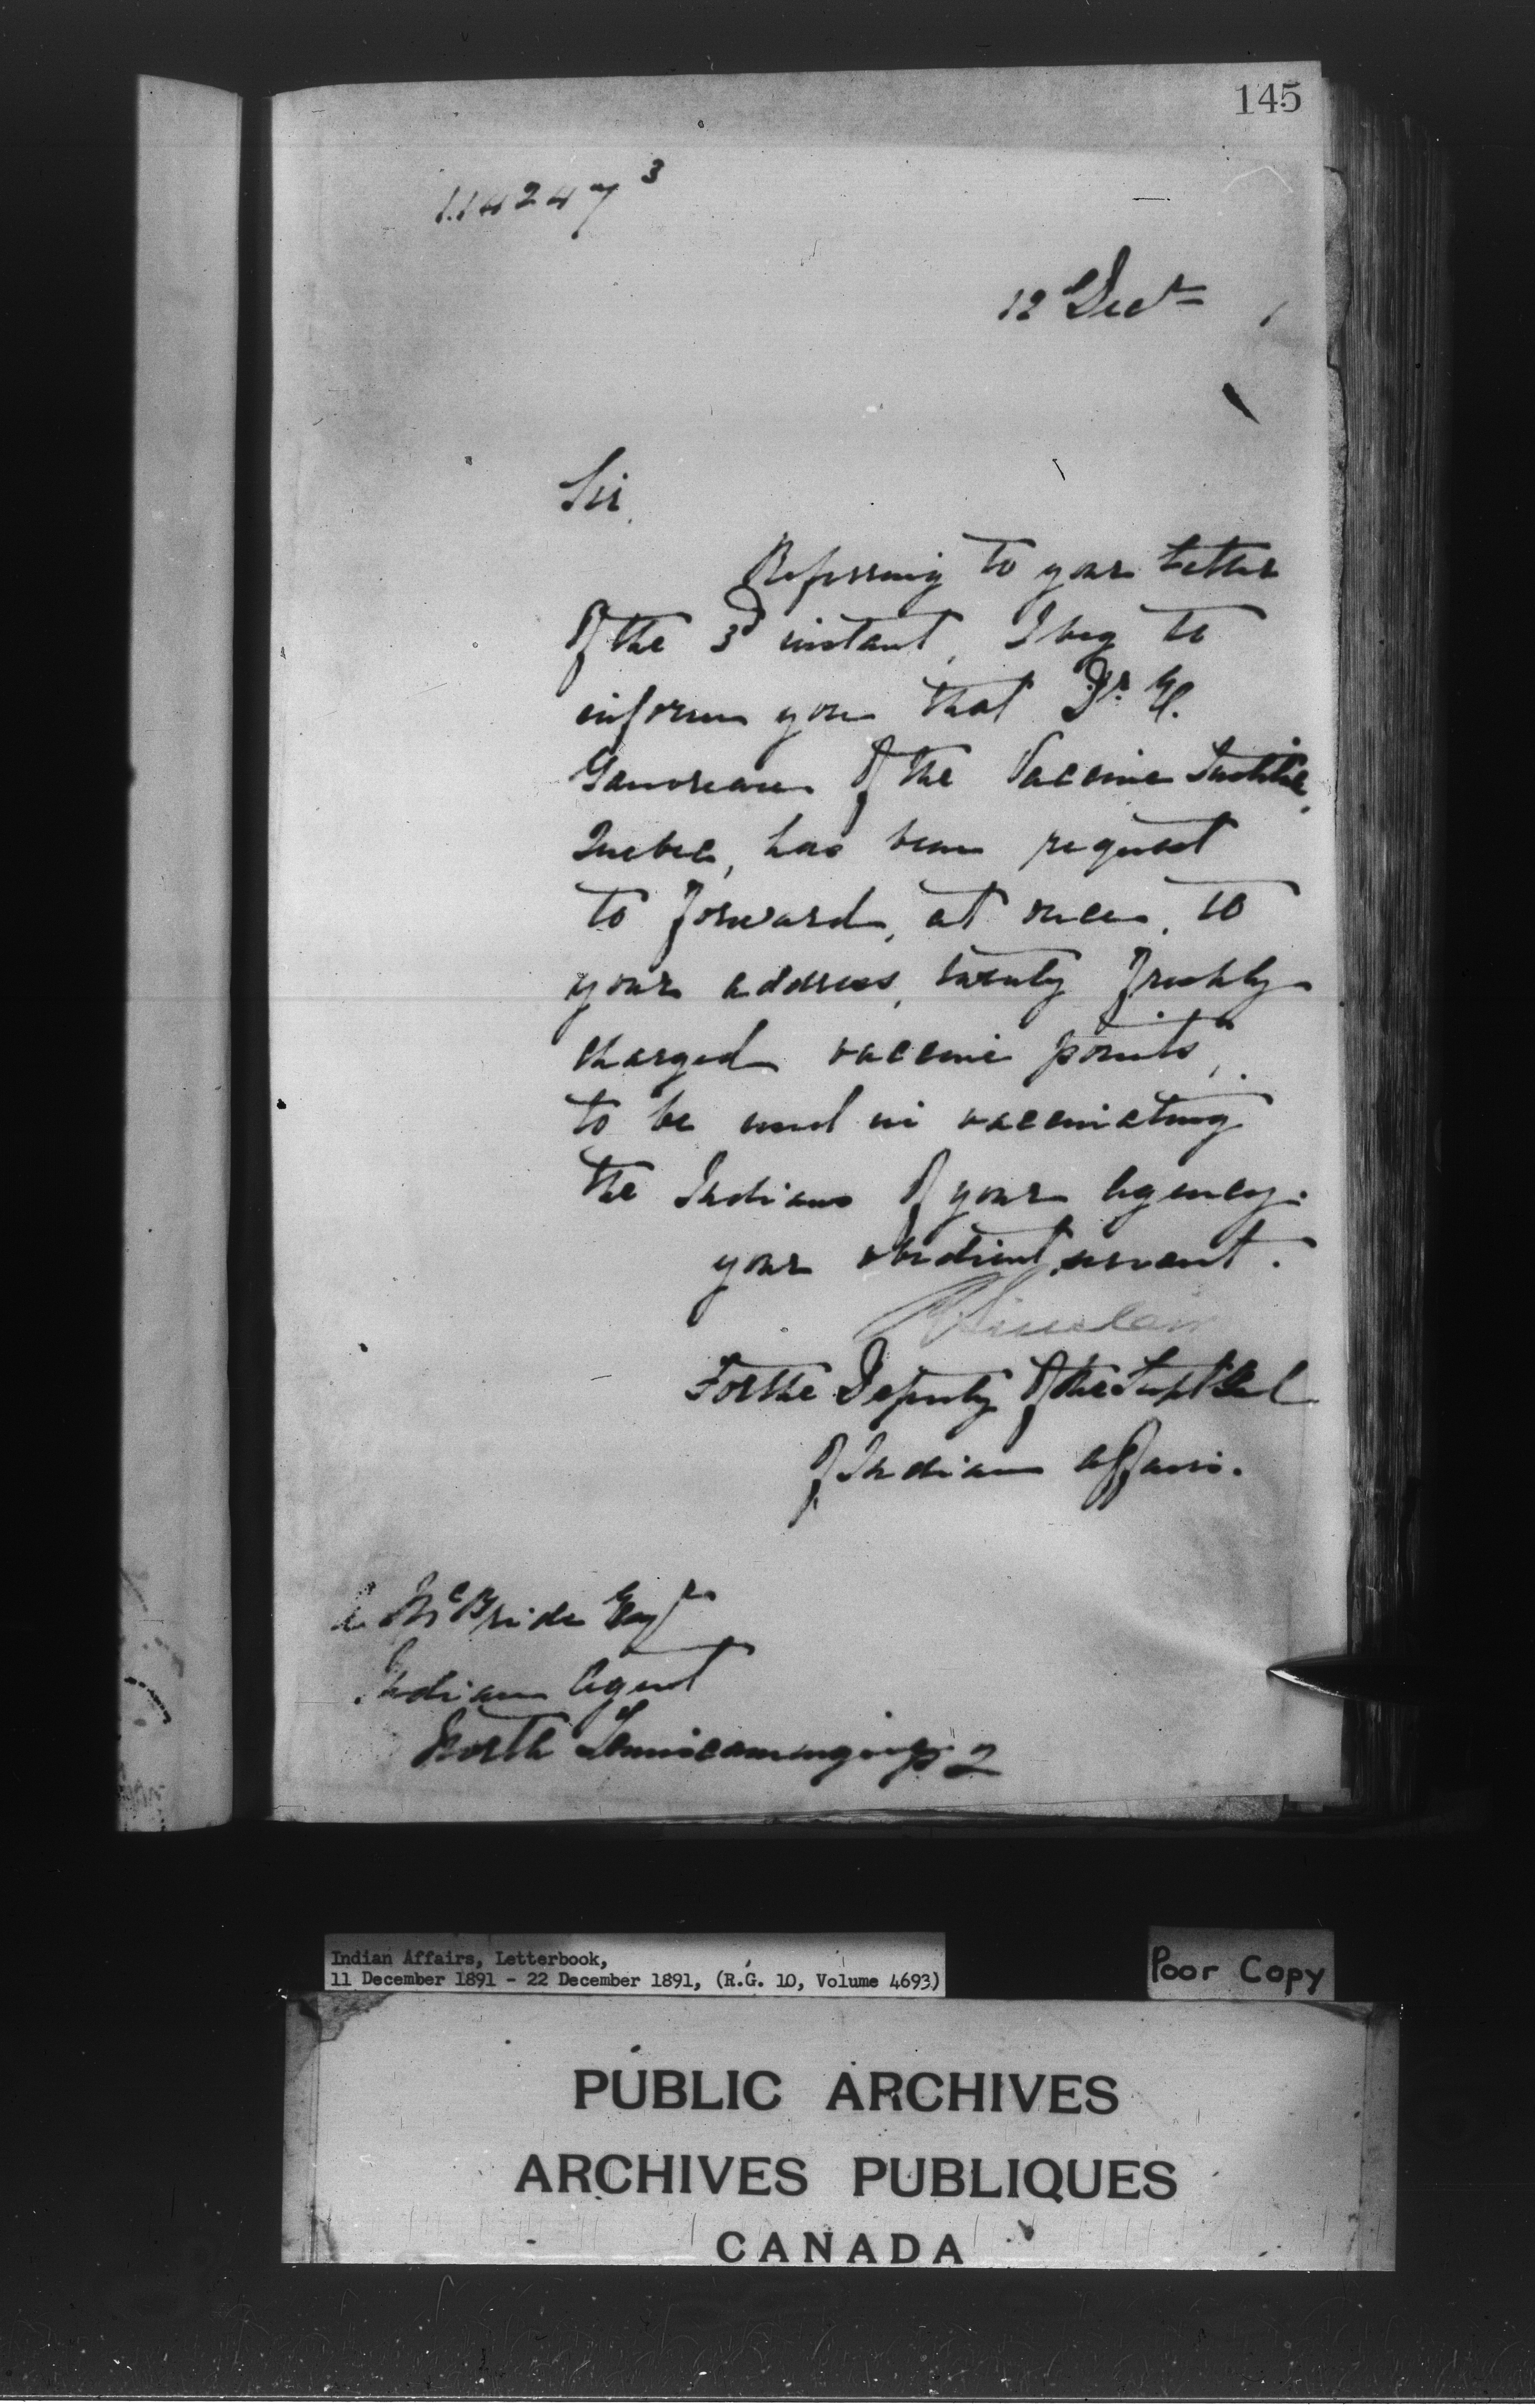 145
114247 3
12 Decr 1
Sir,
Referring to your letter
of the 3d instant, I beg to
inform you that Dr. E.
Gauvreau of the Vaccine Institute,
Quebec, has been request
to forward, at once, to
your address, twenty freshly
charged vaccine points,
to be used in vaccinating
the Indians of your Agency.
your obedient servant.
Sinclair
For the Deputy of the Supt Genl
of Indian Affairs.
A. McBride Esqr
Indian Agent
North Temiscamingue P2
Indian Affairs, Letterbook,
11 December 1891 - 22 December 1891, (R.G. 10, Volume 4693)
Poor Copy
PUBLIC ARCHIVES
ARCHIVES PUBLIQUES
CANADA